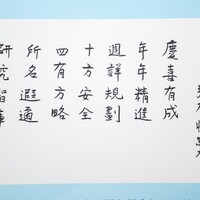 慶喜有成
年年精進
週詳規劃
十方安全
四有方略
所名遐適
研究智庫